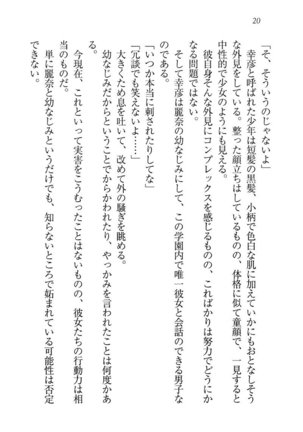 20
「そ、そういうのじゃないよ」
幸彦と呼ばれた少年は短髪の黒髪、小柄で色白な肌に加えていかにもおとなしそう
な外見をしている。整った顔立ちはしているものの、体格に似て童顔で、一見すると
中性的で少女のようにも見える。
彼自身そんな外見にコンプレックスを感じるものの、こればかりは努力でどうにか
なる問題ではない。
そして幸彦は麗奈の幼なじみにして、この学園内で唯一彼女と会話のできる男子な
のだ。
「いつか本当に刺されたりしてな」
「冗談でも笑えないよ……」
大きくため息を吐いて、改めて外の騒ぎを眺める。
幼なじみだからということでからかわれたり、やっかみを言われたことは何度かあ
る。
今現在、これといって実害をこうむったことはないものの、彼女たちの行動力は相
当のものだ。
単に麗奈と幼なじみというだけでも、知らないところで妬まれている可能性は否定
できない。